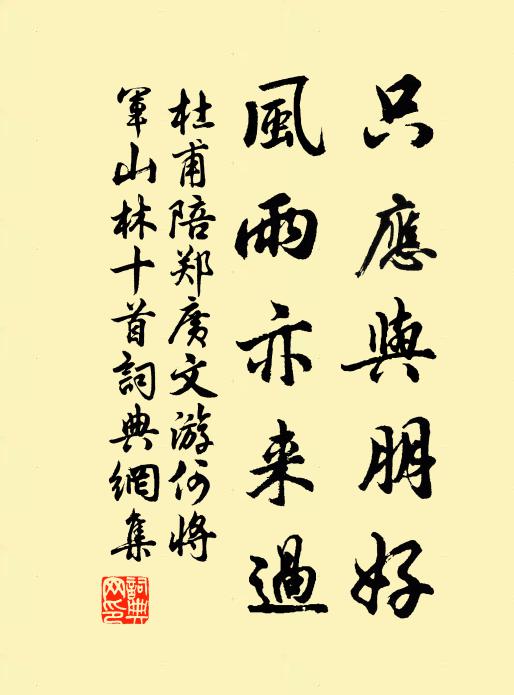 只應與朋好
風雨亦来過
杜甫陪郑廣文游何將
軍山林十首詞典網集
詞典
网印